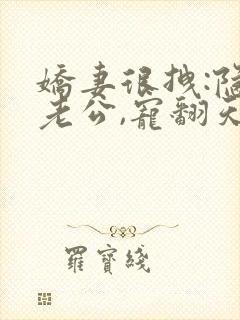 嬌妻很拽:隱
老公,寵翻天
羅寶綫